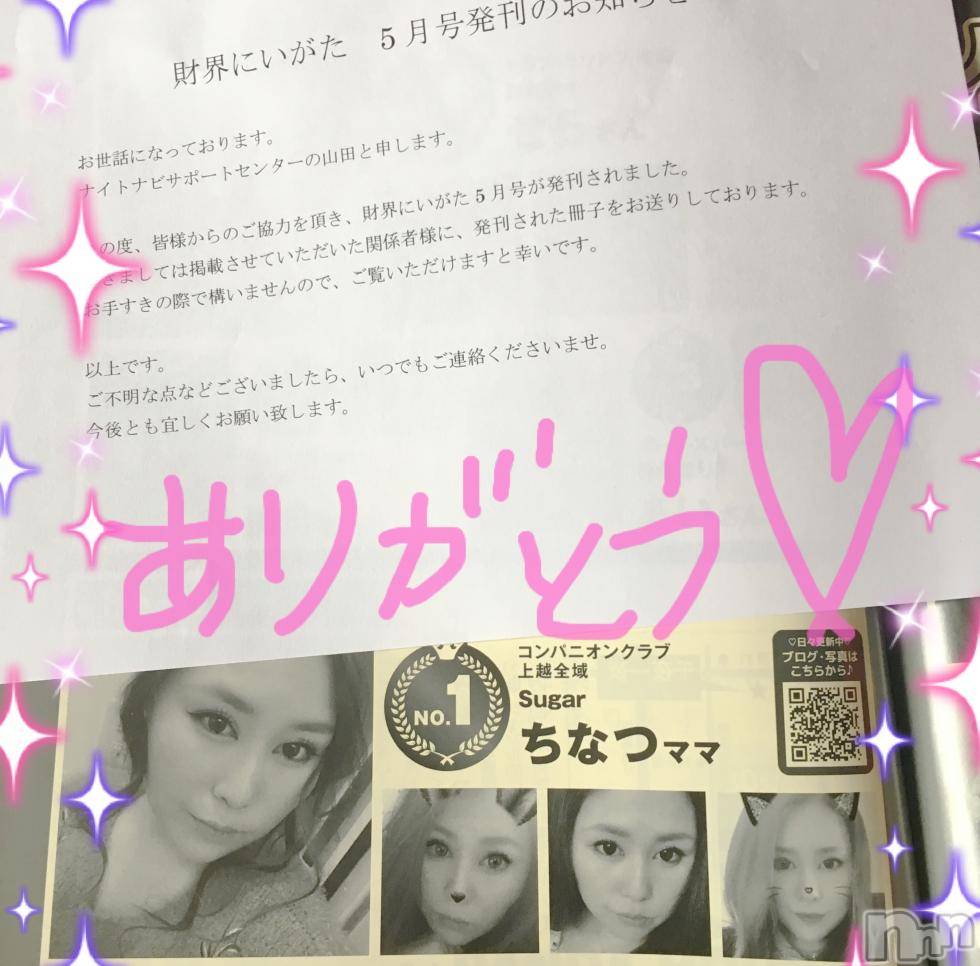 財界にいがた 5月号発刊のお知らせ
お世話になっております。
ナイトナビサポートセンターの山田と申します。
の度、皆様からのご協力を頂き、財界にいがた5月号が発刊されました。
ましては掲載させていただいた関係者様に、発刊された冊子をお送りしております。
お手すきの際で構いませんので、ご覧いただけますと幸いです。
以上です。
ご不明な点などございましたら、いつでもご連絡くださいませ。
今後とも宜しくお願い致します。
ありがとう♡
NO.1
コンパニオンクラブ
上越全域
Sugar
ちなつママ
♡日々更新中♡
ブログ・写真は
こちらから♪